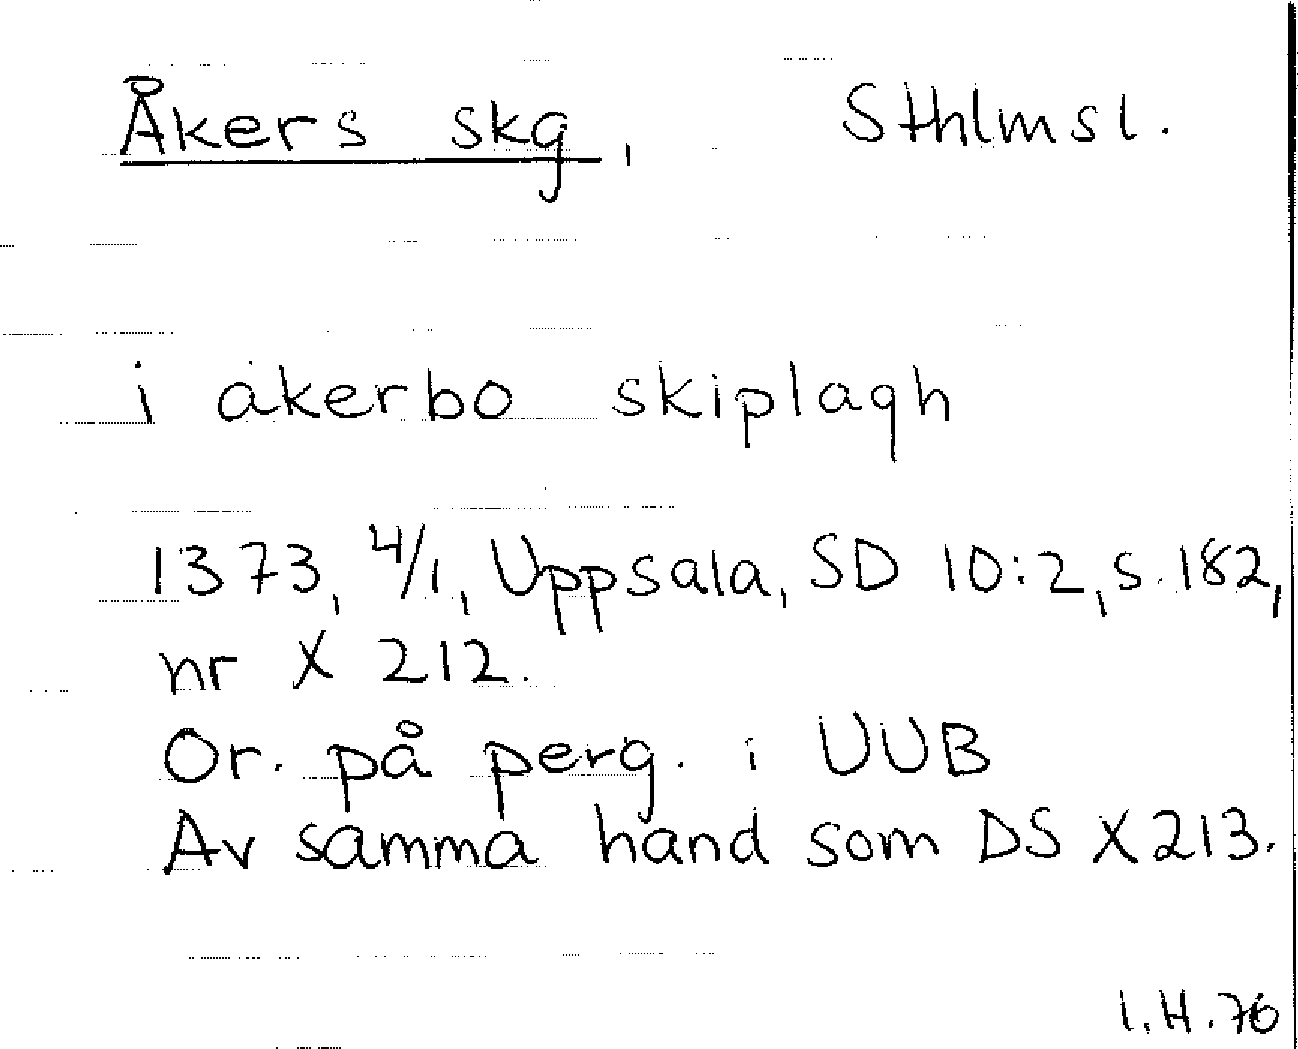 Åkers skg, Sthlmsl.
i akerbo skiplagh
1373, 4/1, Uppsala, SD 10:2, s. 182,
nr X 212.
Or. på perg. i UUB
Av samma hand som DS X 213.
I.H.76